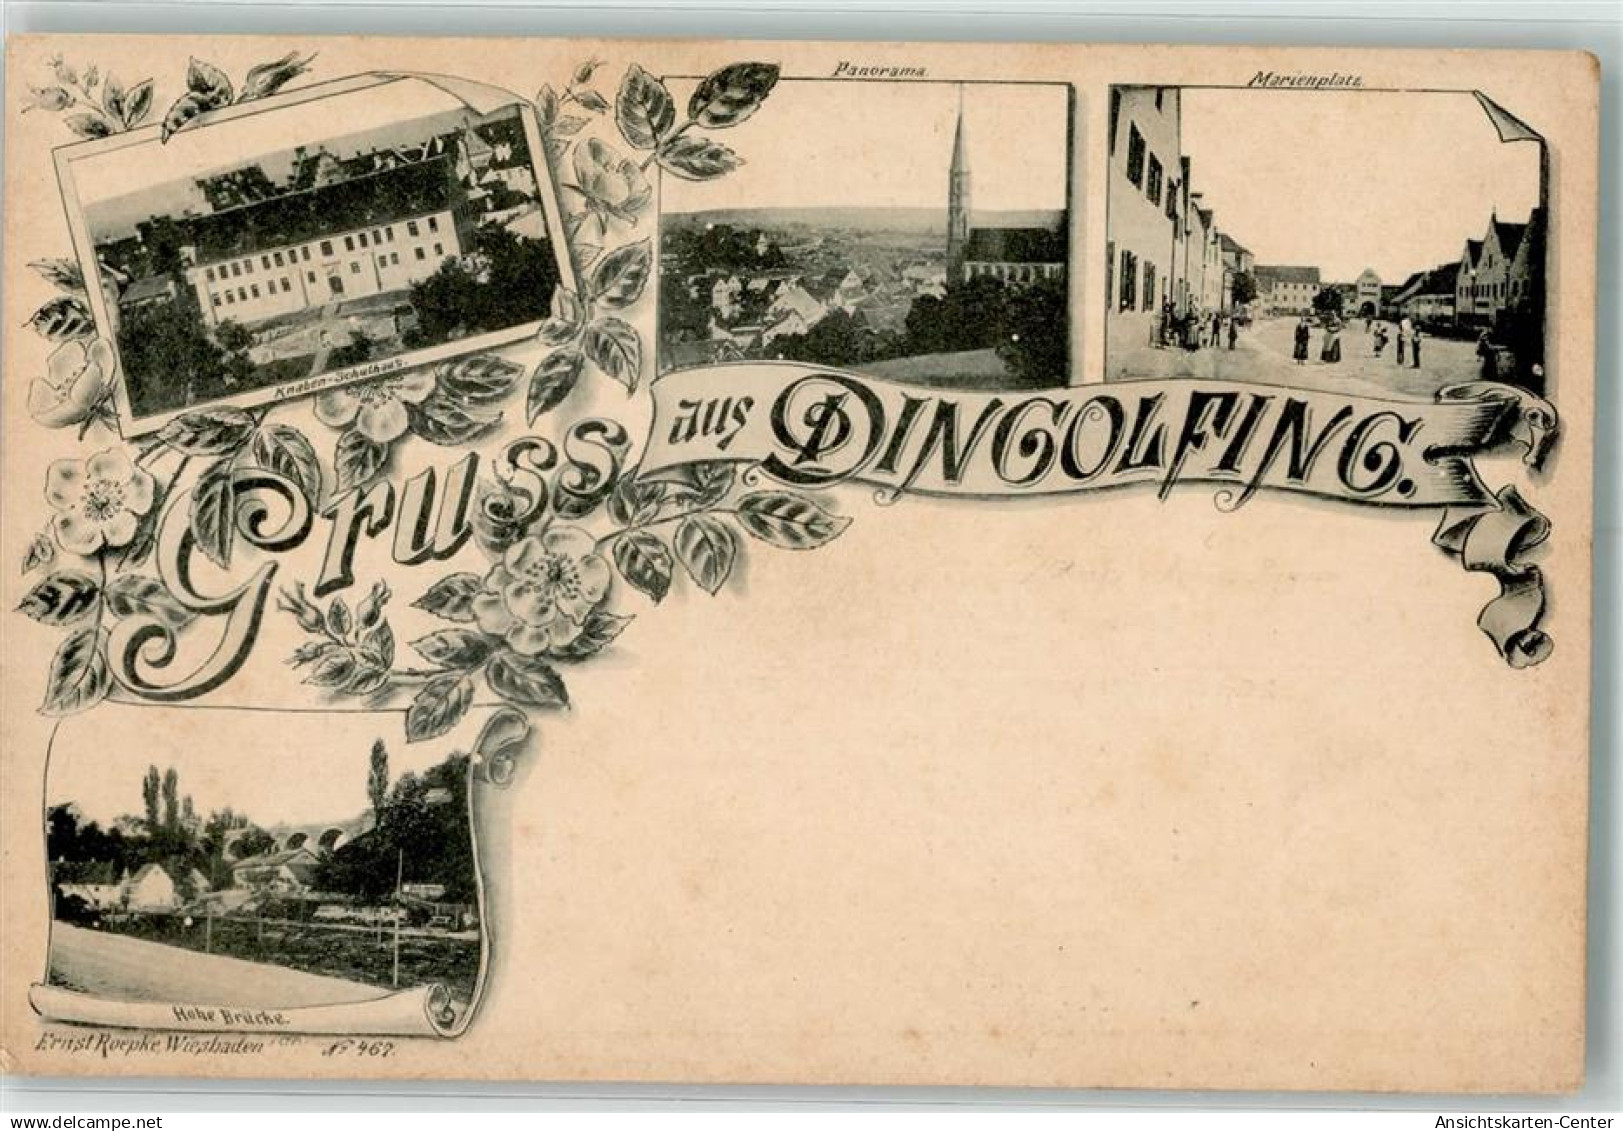 Panorama
Marienplatz.
Knaben-Schulhaus.
Gruss aus DINGOLFING.
Hohe Brücke.
Ernst Roepke, Wiesbaden № 467.
Ansichtskarten-Center